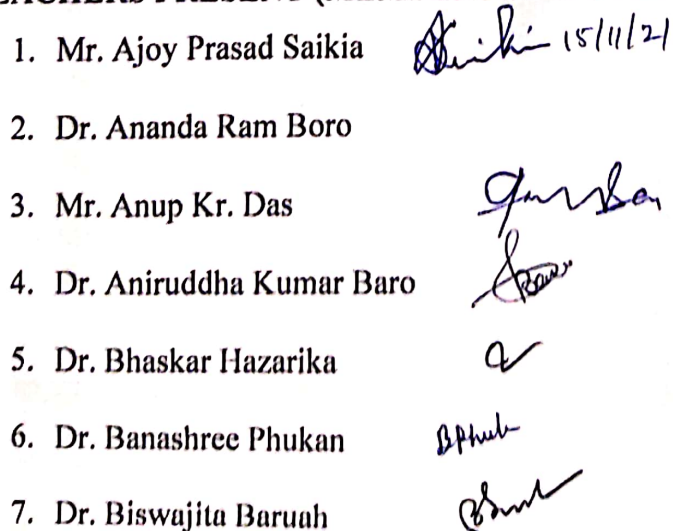 TEACHERS PRESENT
1. Mr. Ajoy Prasad Saikia 15/11/21
2. Dr. Ananda Ram Boro
3. Mr. Anup Kr. Das
4. Dr. Aniruddha Kumar Baro
5. Dr. Bhaskar Hazarika
6. Dr. Banashree Phukan BPhuk
7. Dr. Biswajita Baruah